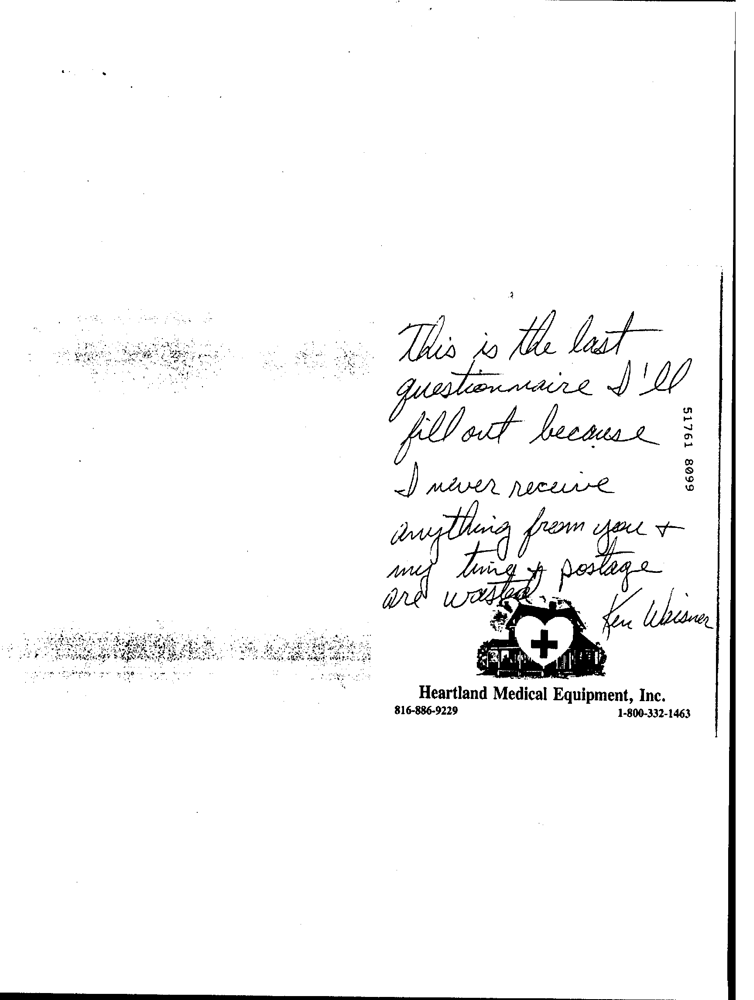 This is the last
questionnaire I'll
fill out because
I never receive
anything from you +
my time & postage
are wasted
Ken Waisner
Heartland Medical Equipment, Inc.
816-886-9229 1-800-332-1463
51761 8099